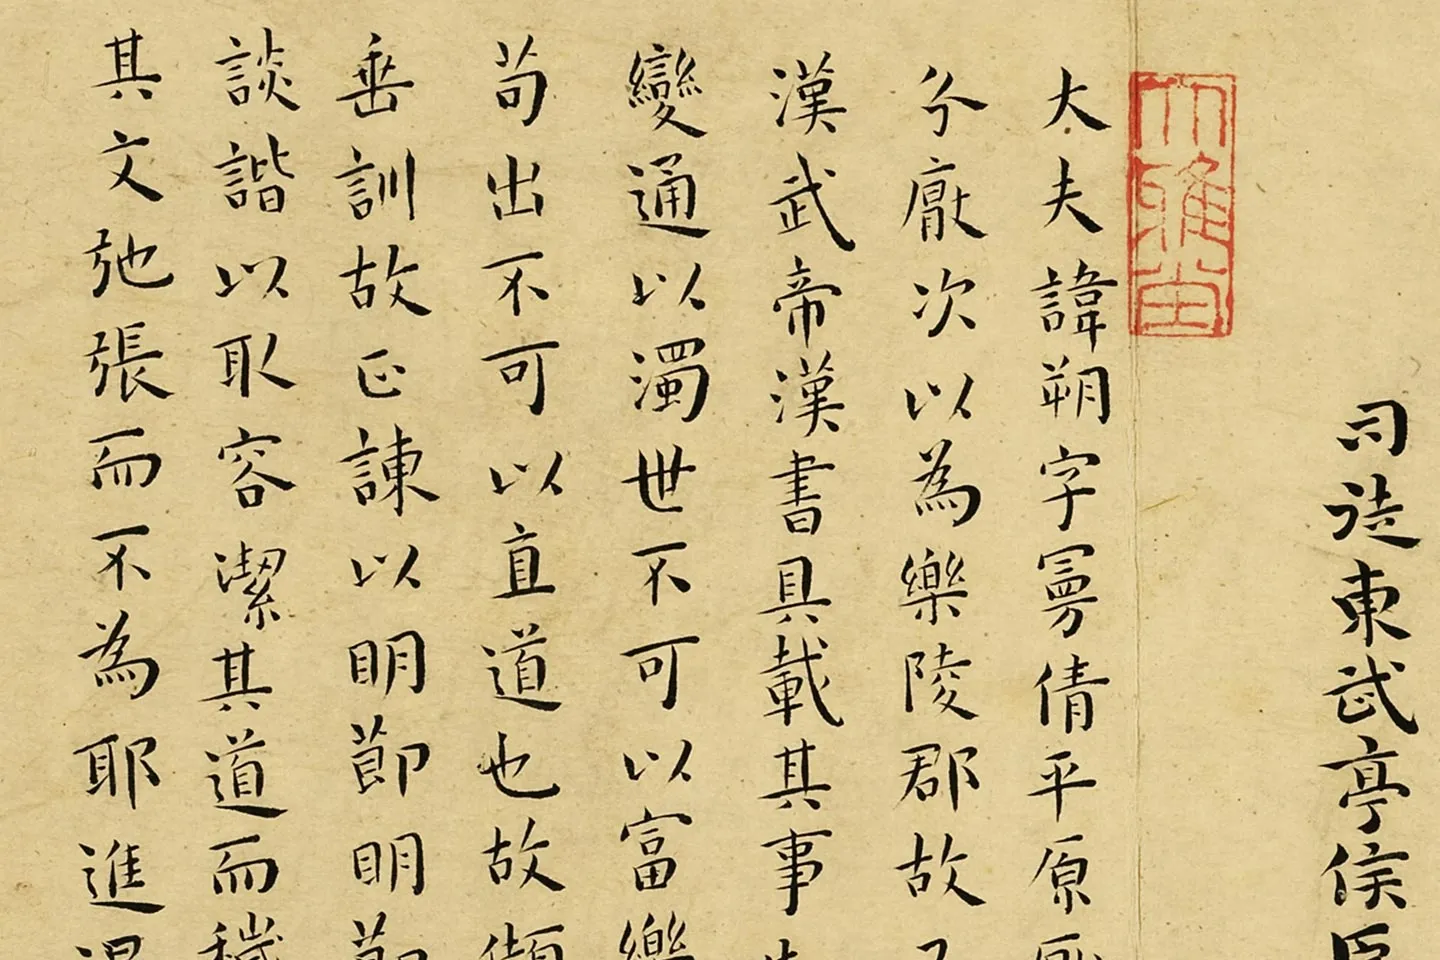 司徒東武亭侯臣
大雅堂
大夫諱朔字曼倩平原厭
分厭次以為樂陵郡故
漢武帝漢書具載其事
變通以濁世不可以富樂
苟出不可以直道也故
垂訓故正諫以明節明節
談諧以取容潔其道而穢
其文弛張而不為耶進